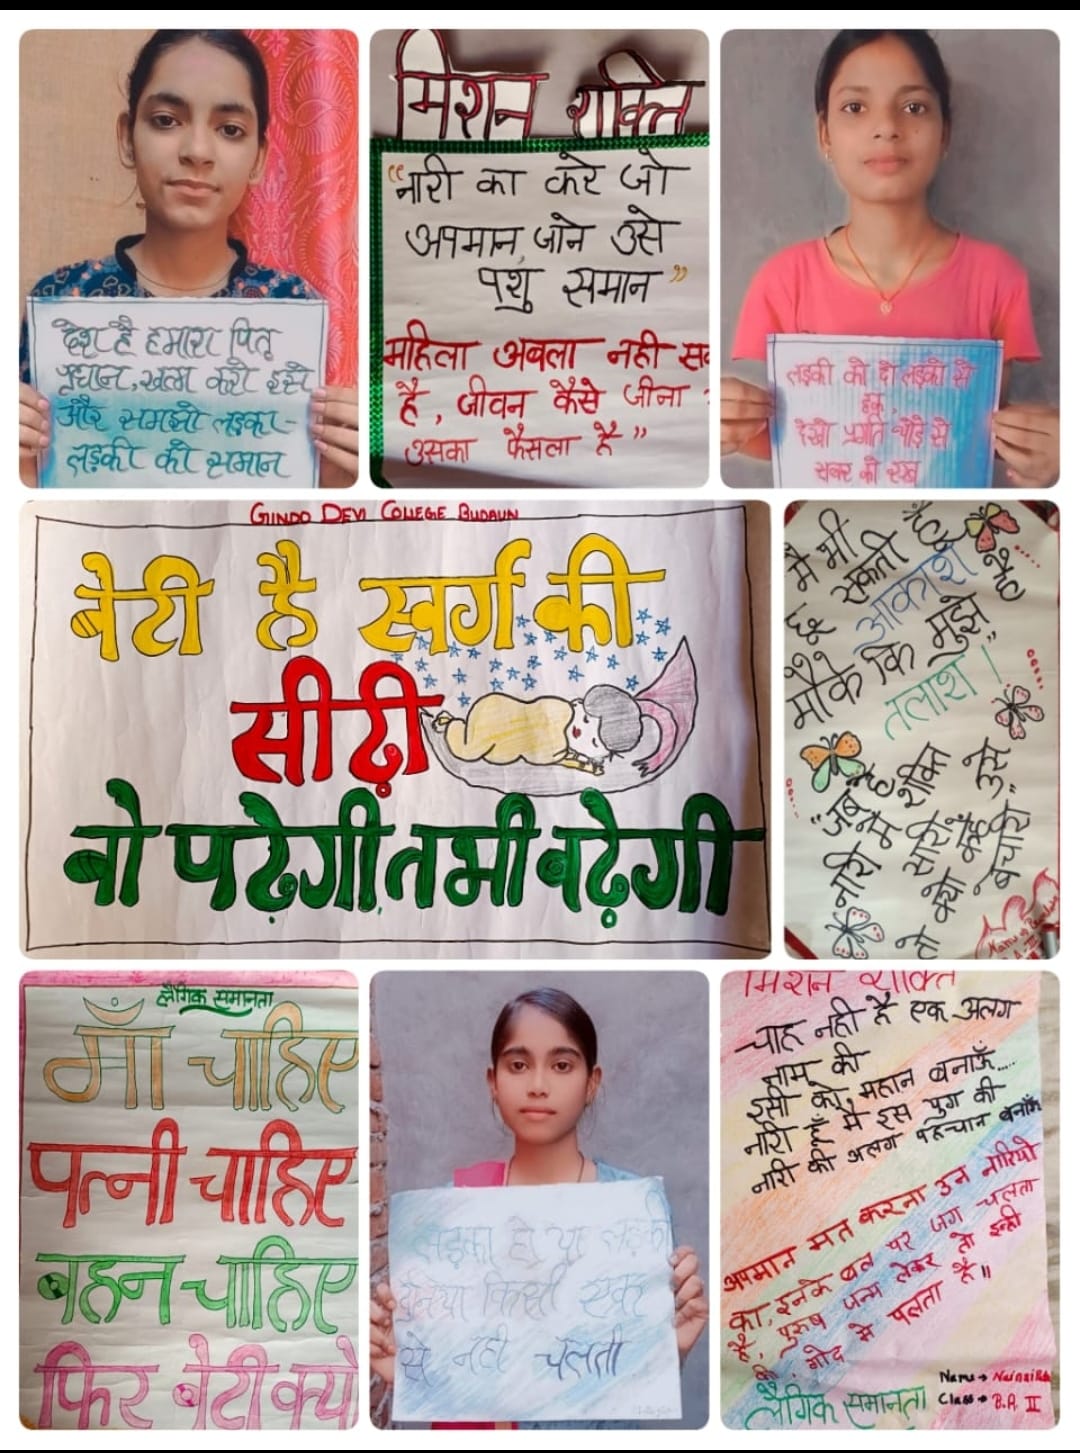 देश है हमारा पितृ
प्रधान, खत्म करो इसे
और समझो लड़का-
लड़की को समान
मिशन शक्ति
“नारी का करे जो
अपमान, जाने उसे
पशु समान”
महिला अबला नही
है, जीवन कैसे जीना
उसका फैसला है”
लड़की को दो लड़को से
हक,
देखो प्रगति थोड़े से
सबर को रख
GINDO DEVI COLLEGE BUDAUN
बेटी है स्वर्ग की
सीढ़ी
वो पढ़ेगी,तभी बढ़ेगी
मै भी
छू सकती हूँ
आकाश
मौके कि मुझे है
तलाश।”
“जब है
नारी मे शक्ति
सारी
तो क्यो कहे उसे
बेचारी”
लैंगिक समानता
माँ चाहिए
पत्नी चाहिए
बहन चाहिए
फिर बेटी क्यो
लड़का हो या लड़की
दुनिया किसी एक
से नही चलती
मिशन शक्ति
चाह नही है एक अलग
नाम की
इसी को महान बनाऊँ....
नारी हूँ मै इस युग की
नारी की अलग पहचान बनाऊँ
अपमान मत करना उन नारियो
का, इनके बल पर जग चलता
है, पुरुष जन्म लेकर तो इन्ही
की गोद मे पलता है॥
लैंगिक समानता
Name→
Class→ B.A II